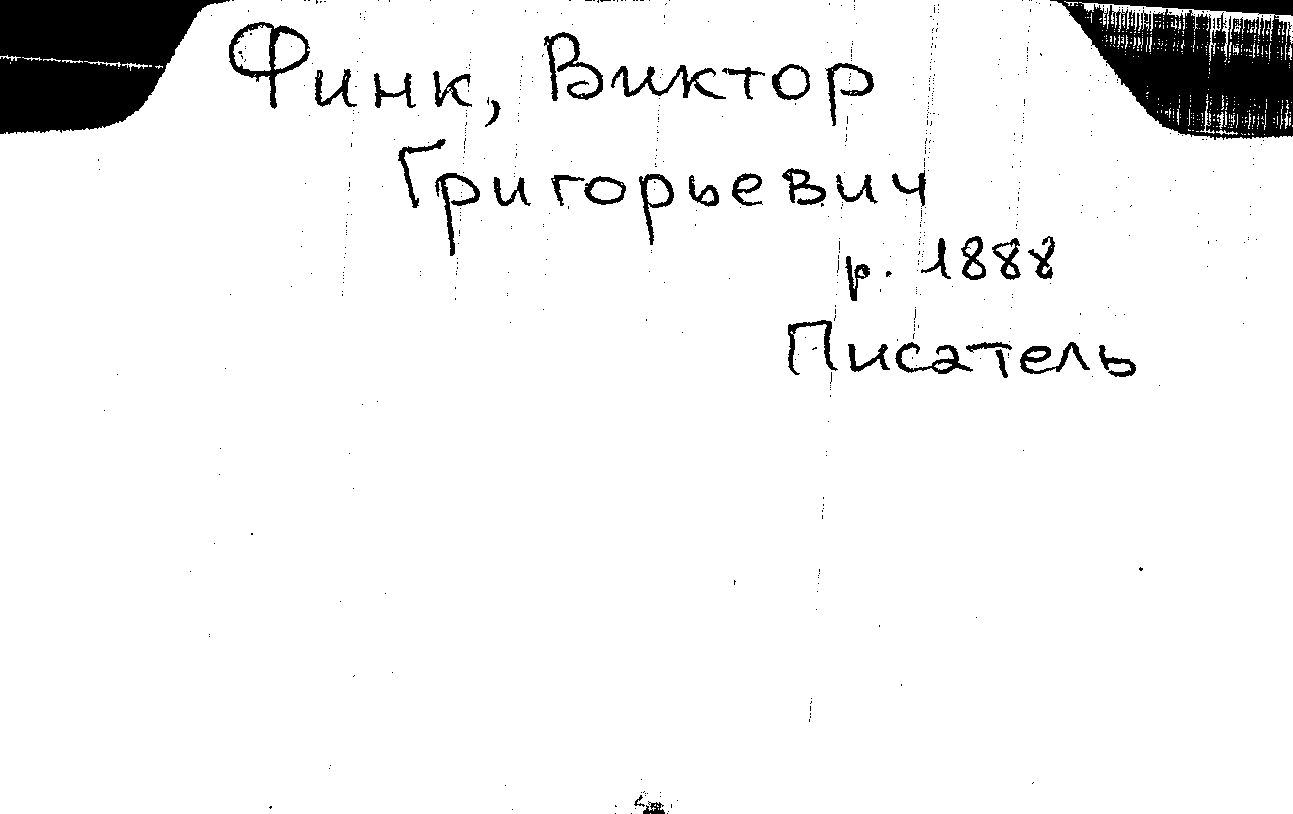 Финк, Виктор
Григорьевич
р. 1888
Писатель